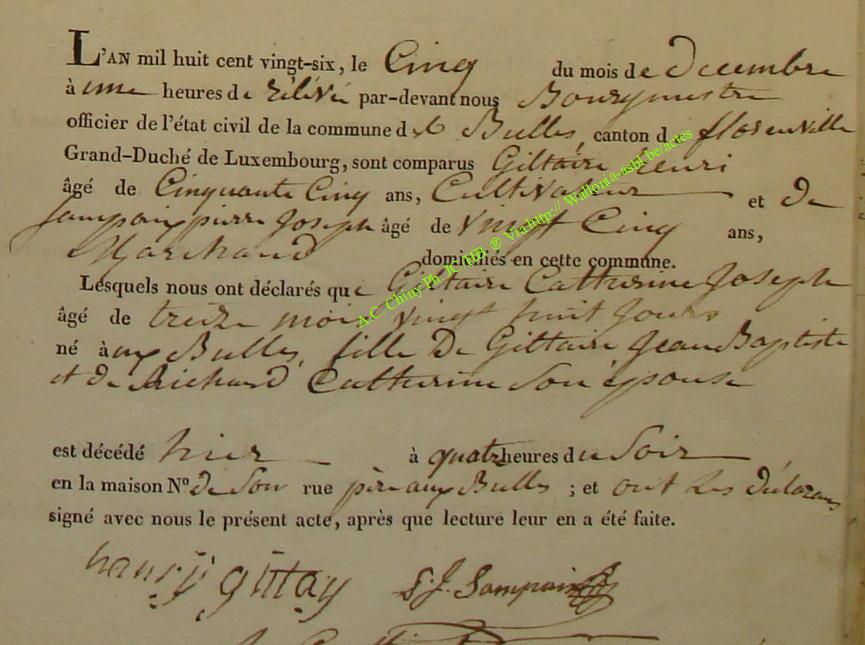 L'AN mil huit cent vingt-six, le Cinq du mois de decembre
à une heures de rélévé par-devant nous Bourgmestre
officier de l'état civil de la commune des Bulles, canton d florenville
Grand-Duché de Luxembourg, sont comparus Giltaire henri
âgé de Cinquante Cinq ans, Cultivateur et de
pierre Joseph âgé de vingt Cinq ans,
Marchand domiciliés en cette commune.
Lesquels nous ont déclarés que Giltaire Catherine Joseph
âgé de treize mois vingt huit Jours
né aux Bulles, fille De Giltaire Jean Baptiste
et de Richard Catherine Son épouse
est décédé hier à quatre heures du Soir
en la maison N° de Son rue père aux Bulles ; et ont Les déclarans
signé avec nous le présent acte, après que lecture leur en a été faite.
henry giltay
A.C. Chiny Ph. JC/HB. ® Via http:// Wallonia-asbl.be/actes